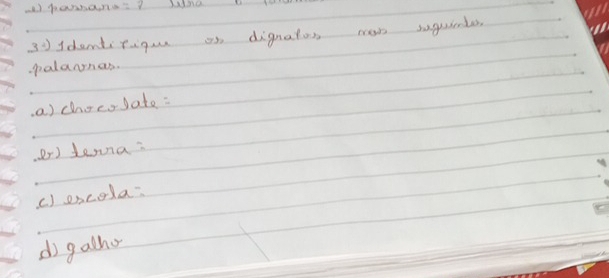 e) passano = ?
3º) Identifique os dígrafos nas seguintes
palavras.
a) chocolate =
b) terra =
c) escola =
d) galho